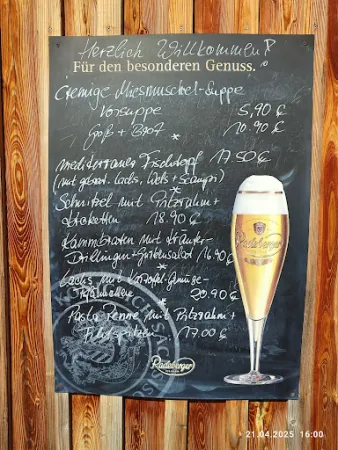 Herzlich Willkommen!
Für den besonderen Genuss.
Cremige Miesmuschel-Suppe
Vorsuppe 5,90 €
groß + Brot 10.90 €
*
mediterraner Fischtopf 17.50 €
(mit gebrat. Lachs, Wels + Scampi)
*
Schnitzel mit Pilzrahm +
Kroketten 18.90 €
*
Kammbraten mit Kräuter-
Drillingen + Gurkensalat 16.90 €
*
Lachs mit Kartoffel-Gemüse-
20.90 €
*
Pasta Penne mit Pilzrahm +
Filetspitzen 17.00 €
Radeberger
Radeberger
21.04.2025 16:00